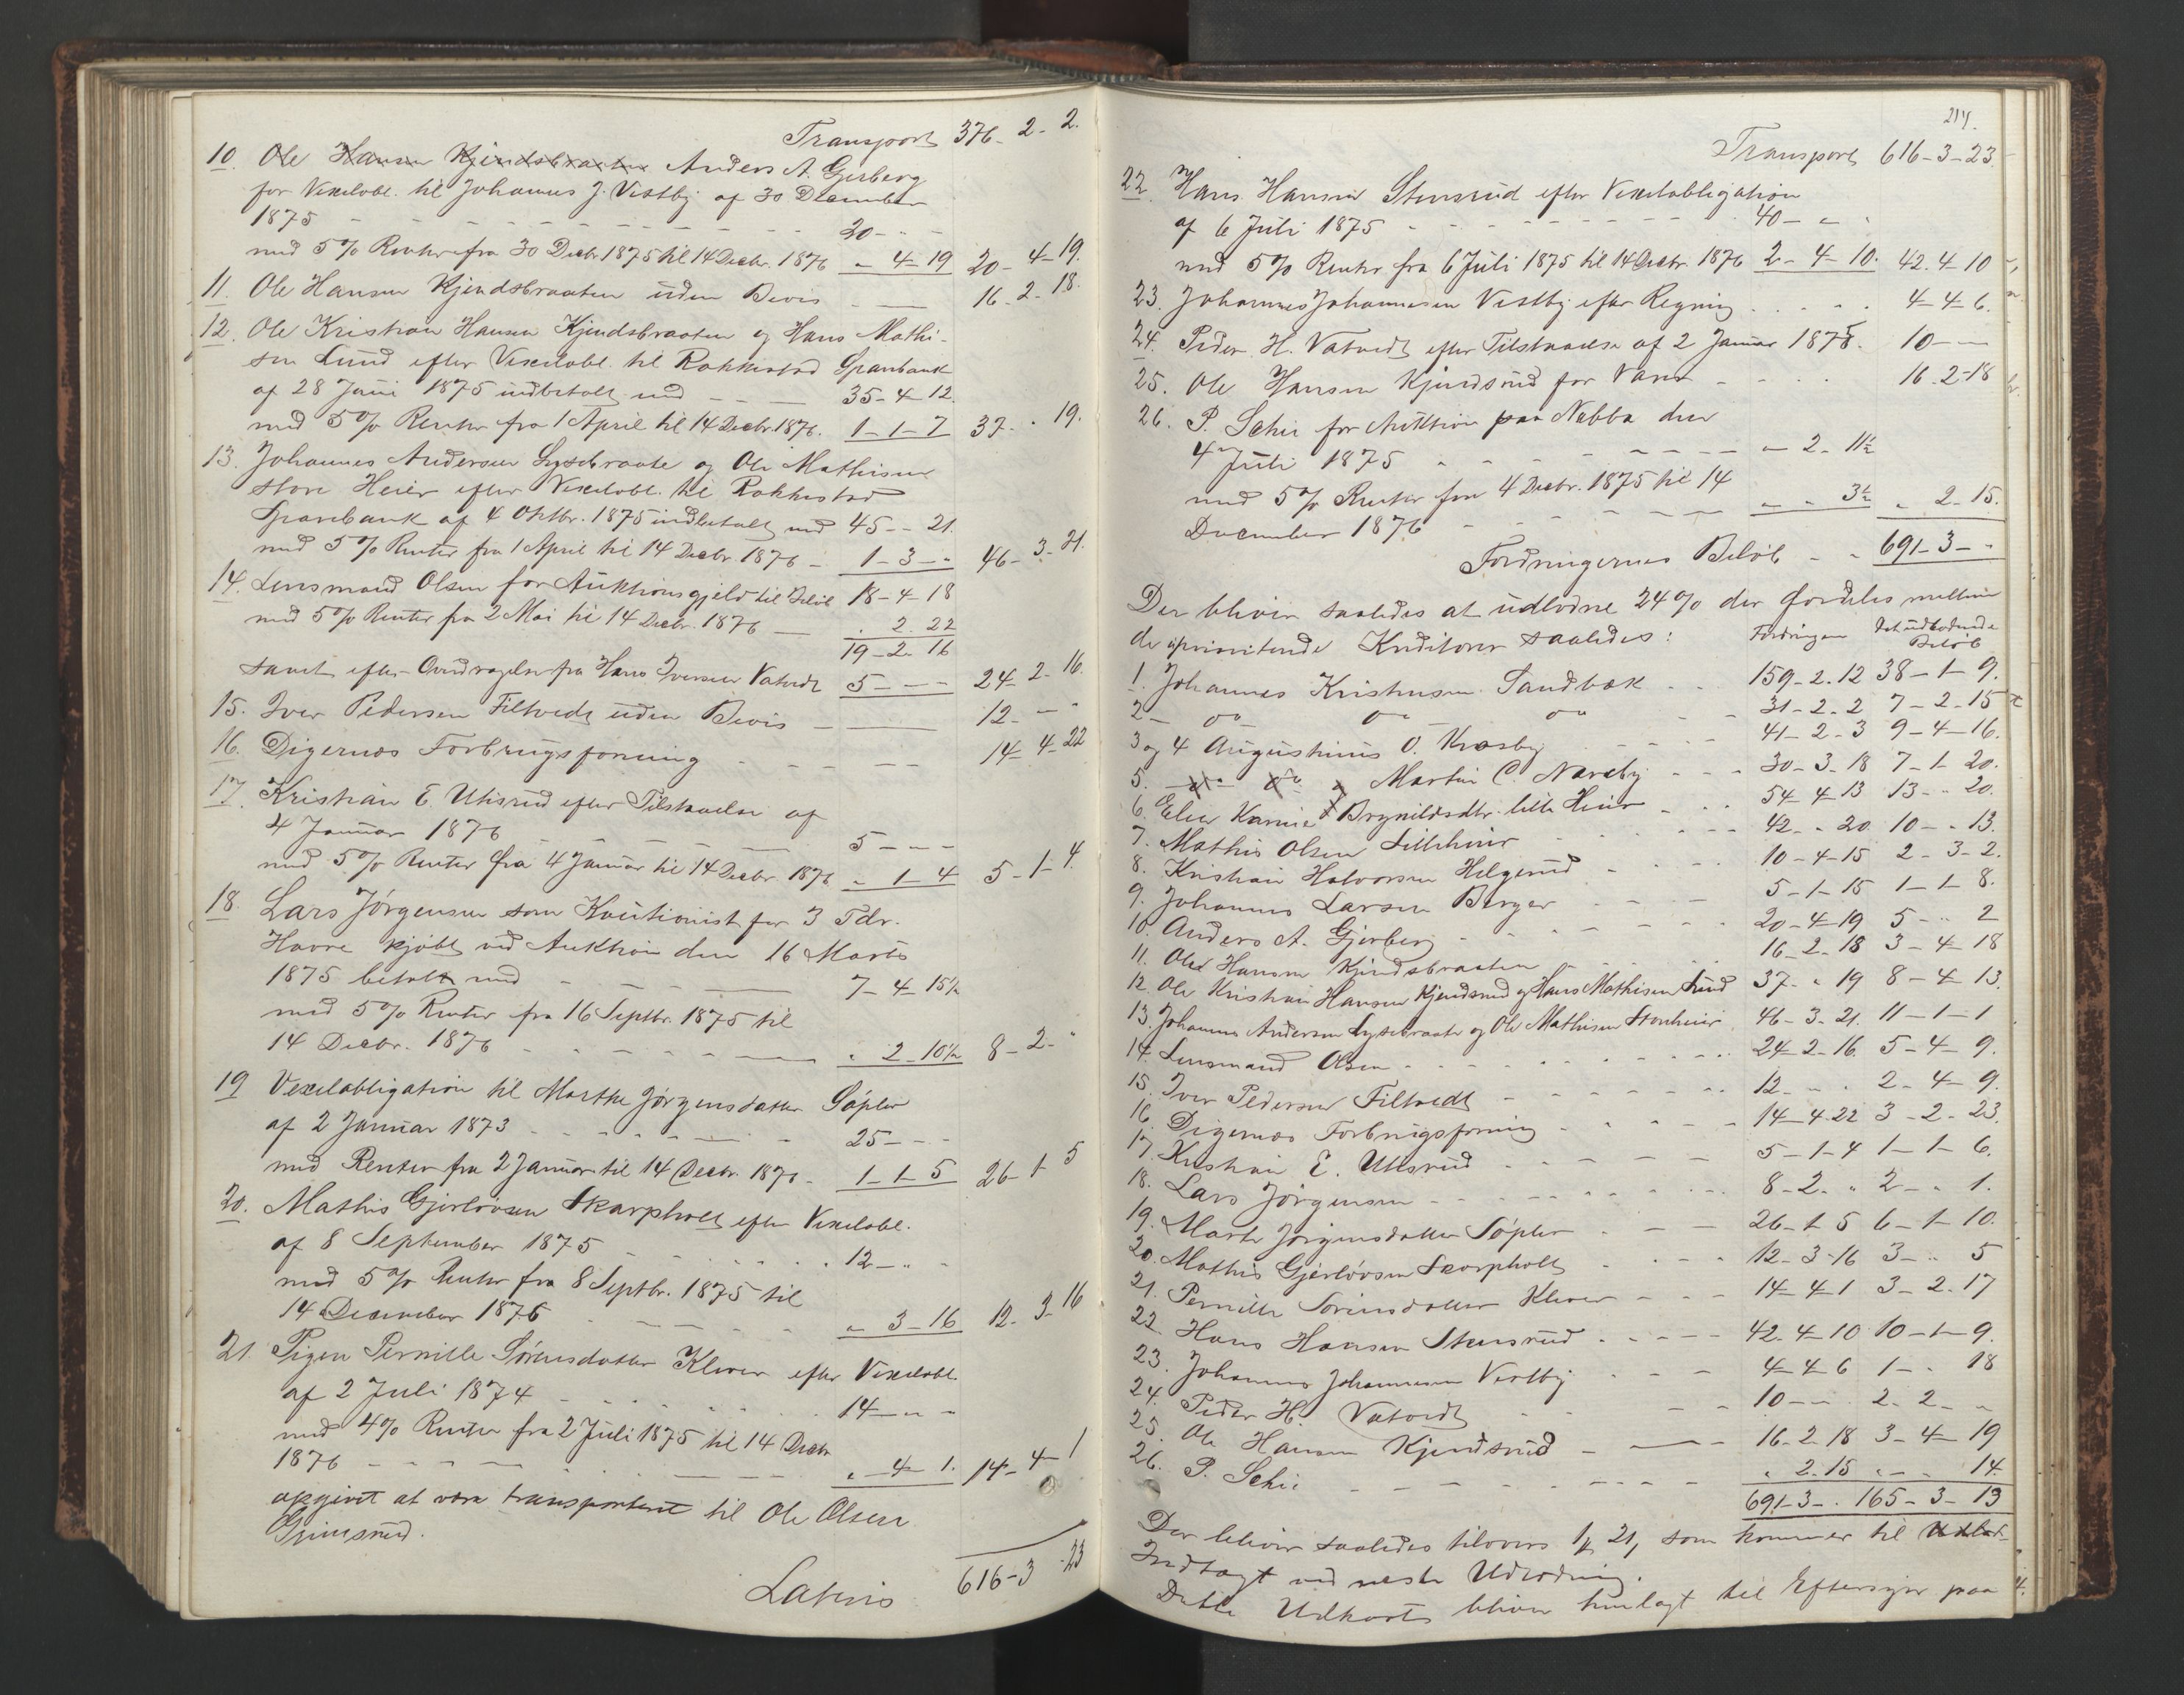 Transport 376 - 2 - 2.
10. Ole Hansen Kjendsbraaten Anders A. Gjerberg
for Vexelobl. til Johannes J. Vestby af 30 December
1875 - - - 20 - " -
med 5 % Renter fra 30 Decbr. 1875 til 14 Decbr. 1876 " - 4 - 19 20 - 4 - 19.
11. Ole Hansen Kjendsbraaten uden Bevis - 16 - 2 - 18.
12. Ole Kristian Hansen Kjendsbraaten og Hans Mathi-
sen Lund efter Vexelobl. til Rakkestad Sparebank
af 28 Juni 1875 indbetalt med - - - 35 - 4 - 12.
med 5 % Renter fra 1 April til 14 Decbr. 1876. 1 - 1 - 7 37 - " 19.
13. Johannes Andersen Lysebraate og Ole Mathisen
store Heier efter Vexelobl. til Rakkestad
Sparebank af 4 Oktbr. 1875 indbetalt med 45 - - 21.
med 5 % Renter fra 1 April til 14 Decbr. 1876 - 1 - 3 - " 46 - 3 - 21.
14. Lensmand Olsen for Auktionsgjeld til Beløb 18 - 4 - 18
med 5 % Renter fra 2 Mai til 14 Decbr. 1876 - . 2. 22
19 - 2 - 16
samt efter Overdragelse fra Hans Iversen Vatvedt 5 - - - 24 - 2 - 16.
15. Iver Pedersen Filtvedt uden Bevis - 12 - - "
16. Digernæs Forbrugsforening - - - 14 - 4 - 22
17. Kristian E. Utisrud efter Tilstaaelse af
4 Januar 1876 - - - 5 - - -
med 5 % Renter fra 4 Januar til 14 Decbr. 1876 " - 1 - 4 5 - 1 - 4.
18. Lars Jörgensen som Kautionist for 3 Tdr.
Havre kjöbt ved Auktion den 16 Marts
1875 betalt med - - - 7 - 4 - 15½
med 5 % Renter fra 16 Septbr. 1875 til
14 Decbr. 1876 - - - " 2 - 10½ 8 - 2 - "
19 Vexelobligation til Marthe Jörgensdatter Söpler
af 2 Januar 1873 - - - 25 - - -
med Renter fra 2 Januar til 14 Decbr. 1876 - 1 - 1 - 5 26 - 1 - 5
20. Mathis Gjerlövsen Skarpholt efter Vexelobl.
af 8 September 1875 - - - 12 - " -
med 5 % Renter fra 8 Septbr. 1875 til
14 December 1876 - - - " - 3 - 16 12 - 3 - 16
21. Pigen Pernille Sörensdatter Klever efter Vexelobl.
af 2 Juli 1874 - - - 14 - " -
med 4 % Renter fra 2 Juli 1875 til 14 Decbr.
1876 - - - " - 4 - 1. 14 - 4 - 1
opgivet at være transporteret til Ole Olsen
Grimsrud.
Lateris 616 - 3 - 23
214.
Transport 616 - 3 - 23
22. Hans Hansen Stensrud efter Vexelobligation
af 6 Juli 1875 - - - 40 - " -
med 5 % Renter fra 6 Juli 1875 til 14 Decbr. 1876 2 - 4 - 10. 42. 4 - 10
23. Johannes Johannesen Vestby efter Regning . . . 4 - 4 - 6.
24. Peder H. Vatvedt efter Tilstaaelse af 2 Januar 1875. 10 - - -
25. Ole Hansen Kjendsrud for Varer - - - 16. 2 - 18
26. P. Schie for Auktion paa Nabba den
4 Juli 1875 - - - " - 2 - 11½
med 5 % Renter fra 4 Decbr. 1875 til 14
December 1876 - - - " - " 3½ " 2 - 15.
Fordringernes Beløb - - 691 - 3 - "
Der bliver saaledes at udlodne 24 % der fordeles mellem
de uprioriterede Kreditorer saaledes: Fordringen Det udlodnede
Beløb
1. Johannes Kristensen Sandbæk . . 159 - 2. 12 38 - 1 - 9.
2 - do do do - - 31 - 2 - 2 7 - 2 - 15
3 og 4 Augustinus O. Krosby - - - 41 - 2 - 3 9 - 4 - 16.
5. Martin C. Næreby - - - 30 - 3 - 18 7 - 1 - 20.
6. Elen Karine Brynildsdtr. lille Heier - - 54 - 4 - 13 13 - " 20.
7. Mathis Olsen Lilleheier - - - 42 - " 20 10 - " 13.
8. Kristian Halvorsen Helgerud - - - 10 - 4 - 15 2 - 3 - 2.
9. Johannes Larsen Berger - - - 5 - 1 - 15 1 - 1 - 8.
10. Anders A. Gjerberg - - - 20 - 4 - 19 5 - " 2
11. Ole Hansen Kjendsbraaten - - - 16 - 2 - 18 3 - 4 - 18
12. Ole Kristian Hansen Kjendsrud og Hans Mathisen Lund 37 - " 19 8 - 4 - 13.
13. Johannes Andersen Lysebraate og Ole Mathisen Storeheier 46 - 3 - 21. 11 - 1 - 1
14. Lensmand Olsen - - - 24 - 2 - 16. 5 - 4 - 9.
15. Iver Pedersen Filtvedt - - - 12 - - . 2 - 4 - 9.
16. Digernæs Forbrugsforening - - - 14 - 4. 22 3 - 2 - 23.
17. Kristian E. Utisrud - - - 5 - 1 - 4 1 - 1 - 6.
18. Lars Jörgensen - - - 8 - 2. " 2 - " 1.
19. Marte Jörgensdatter Söpler - - - 26 - 1 - 5 6 - 1 - 10.
20. Mathis Gjerlövsen Skarpholt - - - 12 - 3 - 16 3 - " 5
21. Pernille Sörensdatter Klever - - - 14 - 4 - 1 3 - 2. 17
22. Hans Hansen Stensrud - - - 42. 4 - 10 10 - 1 - 9.
23. Johannes Johannesen Vestby - - - 4 - 4 - 6 1 - " 18
24. Peder H. Vatvedt - - - 10 - - . 2. 2 - "
25. Ole Hansen Kjendsrud - - - 16 - 2. 18 3 - 4 - 19
26. P. Schie - - - " 2. 15 " - - 14.
691 - 3 - . 165 - 3 - 13
Der bliver saaledes tilovers 21, som kommer til Udlod-
Indtægt ved næste Udlodning.
Dette Udkast bliver henlagt til Eftersyn paa